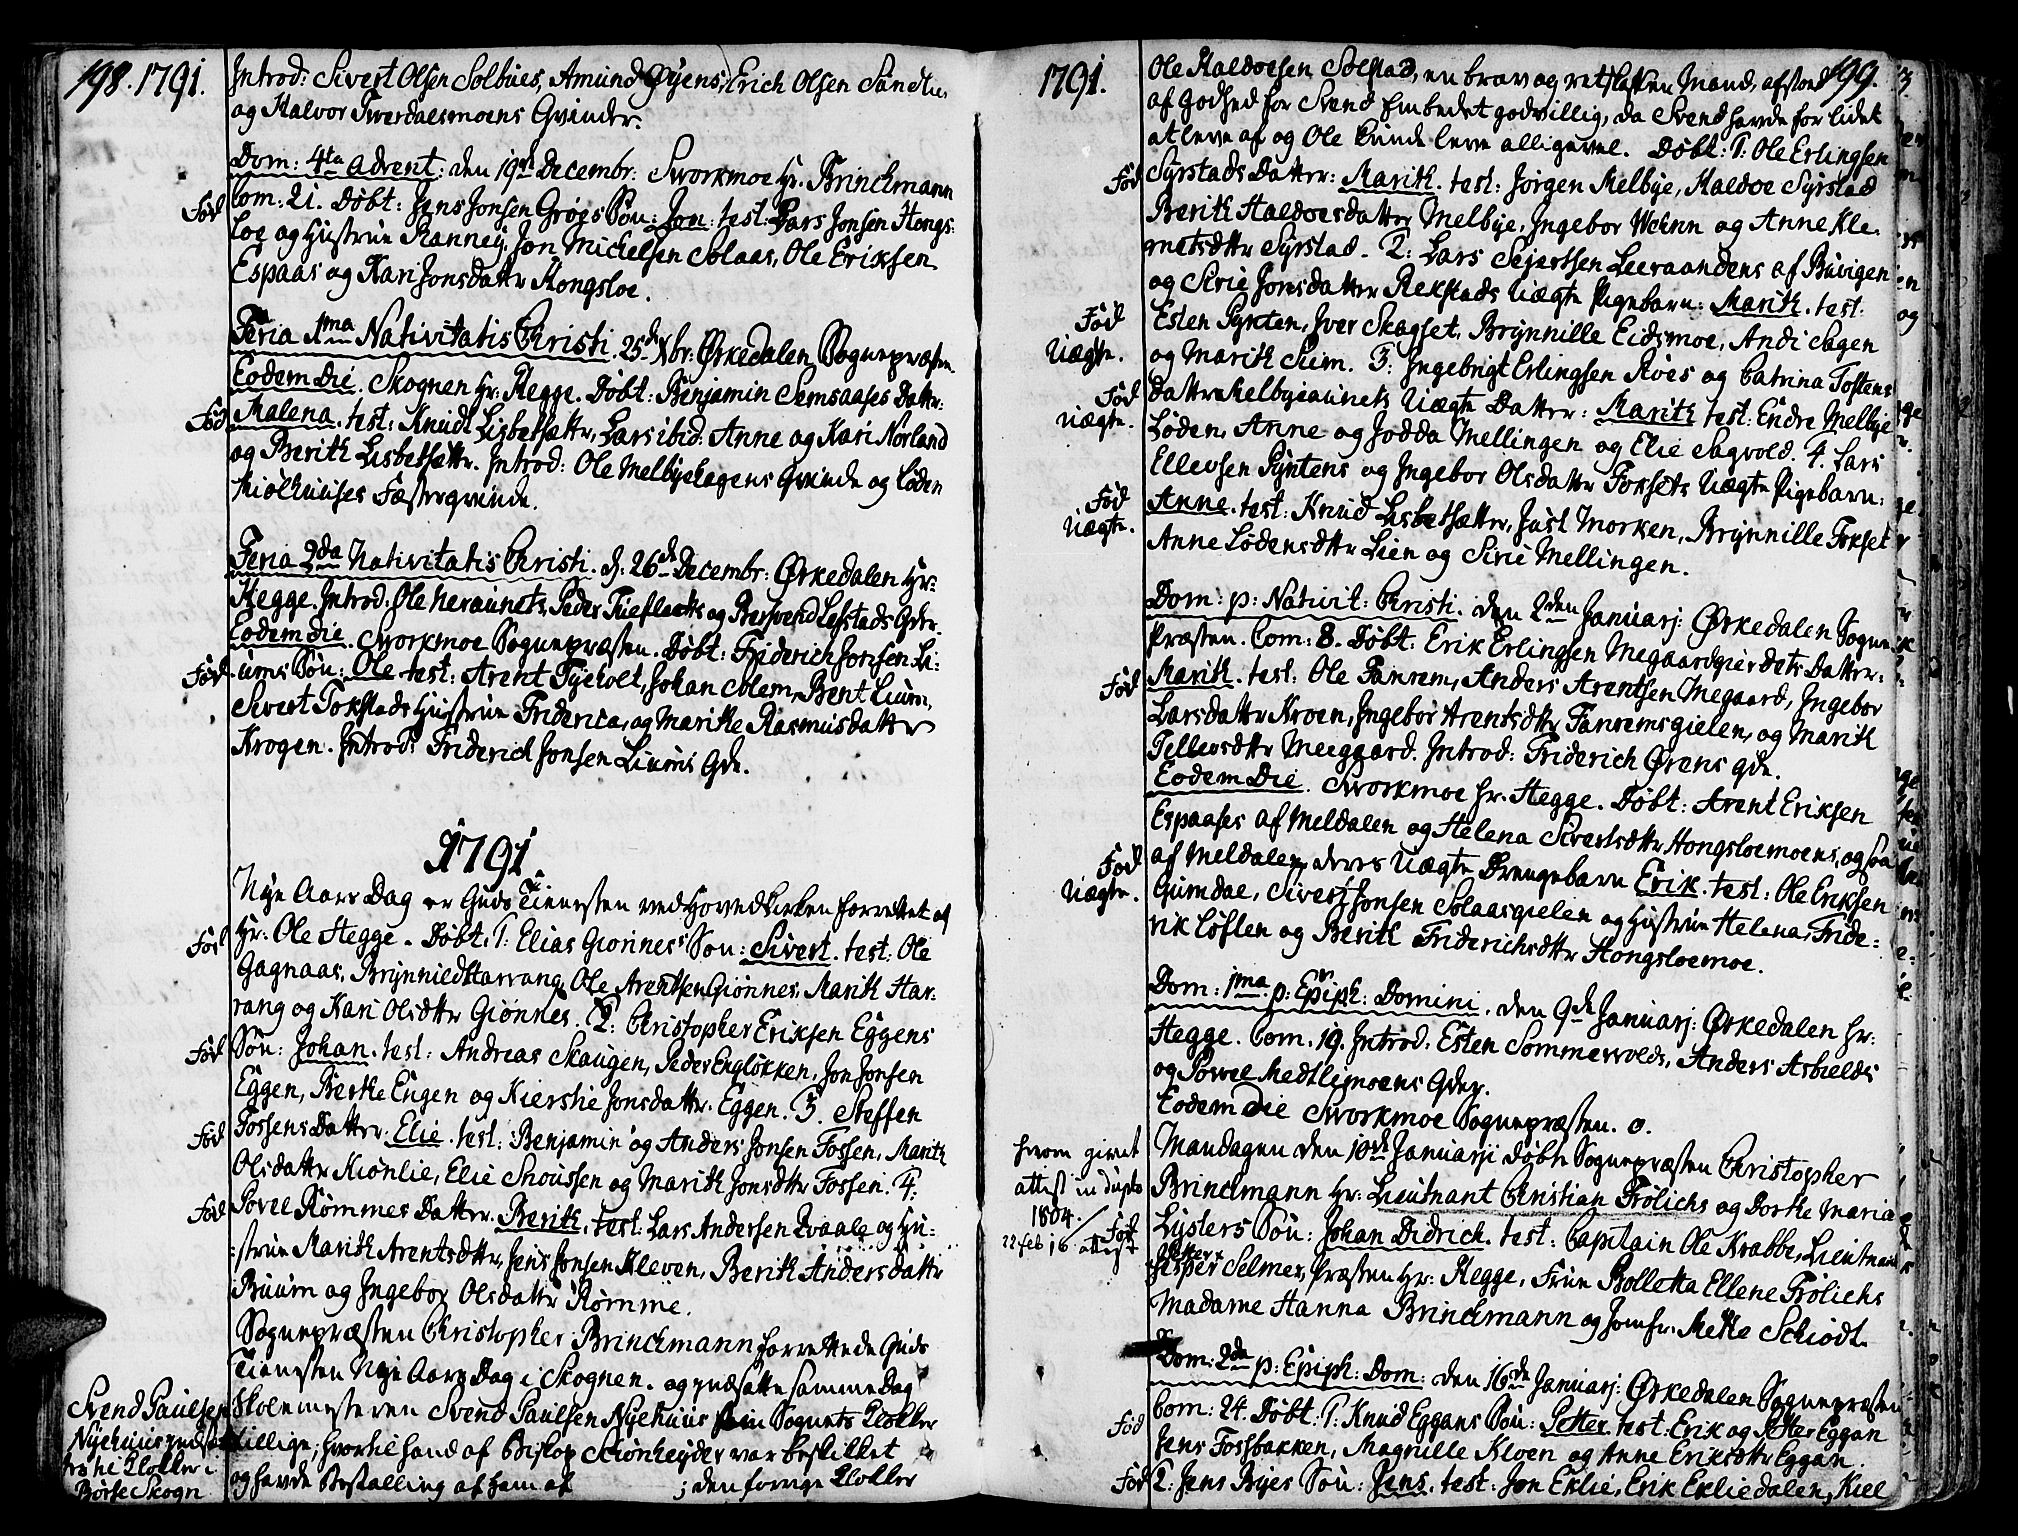 198. 1791.
Introd: Sivert Olsen Solbues, Amund Øyens, Erich Olsen Sandlie
og Halvor Sverdalsmoens Qvinder.
Dom: 4ta Advent: den 19de Decembr: Svorkmoe Hr. Brinchmann
Com: 21. Døbt: Jens Jonsen Grøgs Søn: Jon: test: Lars Jonsen Hongs-
Fød
loe og Hustrue Ranney, Jon Michelsen Solaas, Ole Eriksen
Espaas og Kari Jonsdattr Hongsloe.
Feria 1ma Nativitatis Christi. 25de Xbr: Ørkedalen Sognepræsten
Eodem Die. Skognen Hr: Hegge. Døbt: Benjamin Semsaases Dattr:
Fød
Malena. test: Knud Lisbetsættr, Lars ibid: Anne og Kari Norland
og Berith Lisbetsættr. Introd: Ole Melbyehagens Qvinde og Løden
Miølhuuses Fæsterqvinde.
Feria 2da Nativitatis Christi. d: 26de Decembr: Ørkedalen Hr:
Hegge. Introd: Ole Neraunets, Peder og Berswend Lefstads Qdr.
Eodem Die. Svorkmoe Sognepræsten. Døbt: Friderich Jonsen Li-
Fød
ums Søn: Ole test: Arent Fyeholt, Johan Solem, Bent Lium,
Sivert Fokstads Hustrue Friderica, og Marithe Rasmusdatter
Krogen. Introd: Friderich Jonsen Liums Qde.
1791
Nye Aars Dag er Guds Tienesten ved Hovedkirken forrettet af
Hr: Ole Hegge. Døbt: 1: Elias Gionnes Søn: Sivert. test: Ole
Fød
Gagnaas, Brynnild Harrang, Ole Arentsen Giønnes, Marith Har-
rang og Kari Olsdttr Giønnes. 2: Christopher Eriksen Eggens
Fød
Søn: Johan. test: Andreas Skaugen, Peder Engløkken, Jon Jonsen
Eggen, Berthe Eugen og Kiersti Jonsdattr Eggen. 3. Steffen
Fød
Fossens Datter. Elie. test: Benjamin og Anders Jonsen Fossen, Marith
Olsdattr Kionlie, Elie Snoussen og Marith Jonsdttr Fossen. 4:
Fød
Povel Rømmes Datter. Berith. test: Lars Andersen Evaale og Hu-
strue Marith Arentsdttr, Jens Jonsen Kleven, Berith Andersdattr
Buum og Ingebor Olsdattr Rømme.
Sognepræsten Christopher Brinchmann forrettede Guds
Tienesten Nye Aars Dag i Skognen. og indsatte samme Dag
Skolemesteren Svend Paulsen Nyehuus som Sognets Klokker
Svend Paulsen
Nyehuus indsat
til Klokker i
Børse Skogn
tillige; hvortil hand af Biskop Schönheyder var beskikket
og havde Bestalling af ham af ; den forrige Klokker
1791. 199.
Ole Haldoesen Solstad, en brav og retskaffen Mand, afstod
af Godhed for Svend Embedet godvillig, da Svend havde for lidet
at leve af og Ole kunde leve alligevel. Døbt: 1: Ole Erlingsen
Fød
Syrstads Datter: Marith. test: Jørgen Melbye, Haldoe Syrstad
Berith Haldoesdatter Melbye, Ingebor Wenn og Anne Kle-
metsdttr Syrstad. 2: Lars Sejertsen Leeraandens af Buvigen
og Sirie Jonsdatter Rekstads Uægte Pigebarn: Marith. test:
Fød
Uægte.
Esten Synten, Iver Skagset, Brynnille Eidsmoe, Andi Sagen
og Marith Siem. 3: Ingebrigt Erlingsen Roes og Catrina Tostens
Fød
Uægte.
datter Melbyeaunets Uægte Datter: Marith test: Endre Melbye
Løden, Anne og Jodda Mellingen og Elie Sagvold. 4. Lars
Ellevsen Syntens og Ingebor Olsdattr Foksets Uægte Pigebarn:
Fød
Uægte.
Anne. test: Knud Lisbetsættr, Just Morken, Brynnille Fokset
Anne Lødensdttr Lien og Sirie Mellingen.
Dom: p: Nativit: Christi. den 2den Januarj: Ørkedalen Sogne-
Præsten. Com: 8. Døbt: Erik Erlingsen Megaardgierdets Datter:
Fød
Marith. test: Ole Fanrem, Anders Arentsen Megaard, Ingebor
Larsdattr Kroen, Ingebor Arentsdttr Fanremsgielen, og Marith
Tellevsdttr Meegaard. Introd: Friderich Ørens Qde.
Eodem Die. Svorkmoe Hr. Hegge. Døbt: Arent Eriksen
Espaases af Meldalen og Helena Sivertsdttr Hongsloemoens, ogsaa
Fød
Uægte.
af Meldalen, deres Uægte Drengebarn Erik. test: Ole Eriksen
Gumdal, Sivert Jonsen Solaasgielen og Hustrue Helena, Fride-
rik Løften og Berith Friderichsdttr Hongsloemoe.
Dom: 1ma p: Epiph: Domini. den 9de Januarj: Ørkedalen Hr:
Hegge. Com. 19. Introd: Esten Sommervolds, Anders Asbields
og Povel Medtliemoens Qder.
Eodem Die Svorkmoe Sognepræsten. 0.
Mandagen den 10de Januarii døbte Sognepræsten Christopher
hvorom givet
attest in duplo
1804.
22 feb 16 attest
Fød
Brinchmann Hr: Lieutnant Christian Frölichs og Dorthe Maria
Lyslers Søn: Johan Didrich. test: Capitain Ole Krabbe, Lieutnant
Jesper Selmer, Præsten Hr: Hegge, Frue Bolletta Ellene Frölichs
Madame Hanna Brinchmann og Jomfr: Mette Schiødt.
Dom: 2de p: Epiph: Dom: den 16de Januarj: Ørkedalen Sognepræsten
Fød
Com: 24. Døbt: 1: Knud Eggans Søn: Petter. test: Erik og Petter Eggan
Jens Fossbakken, Magnille Kloen og Anne Eriksdttr Eggan.
Fød
2: Jens Byes Søn: Jens. test: Jon Eklie, Erik Ekliedalen, Kiel